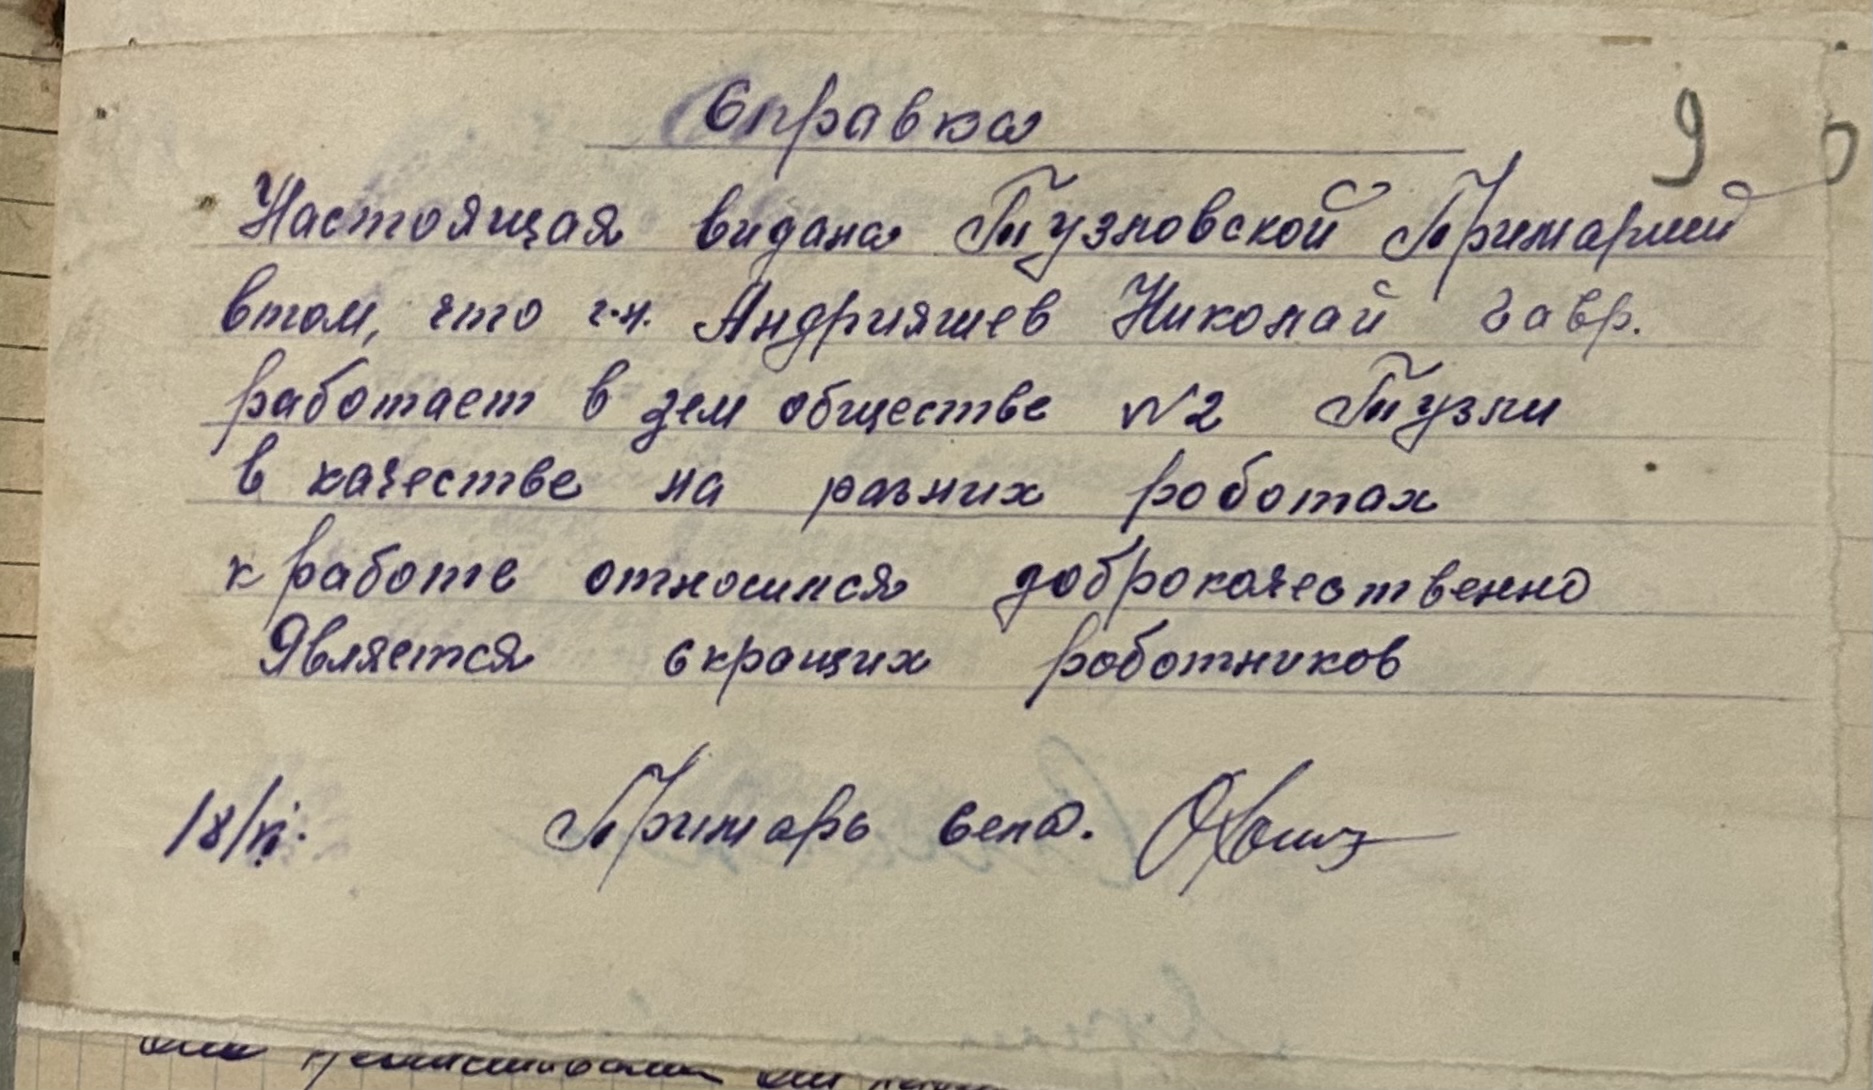 Справка
9
Настоящая видана Тузловской Примарией
втом, что г.н. Андрияшев Николай Гавр.
работает в зем обществе N2 Тузли
в качестве на разних роботах
к работе относился доброкачественно
Является скращих роботников
18/VI. Примарь села.